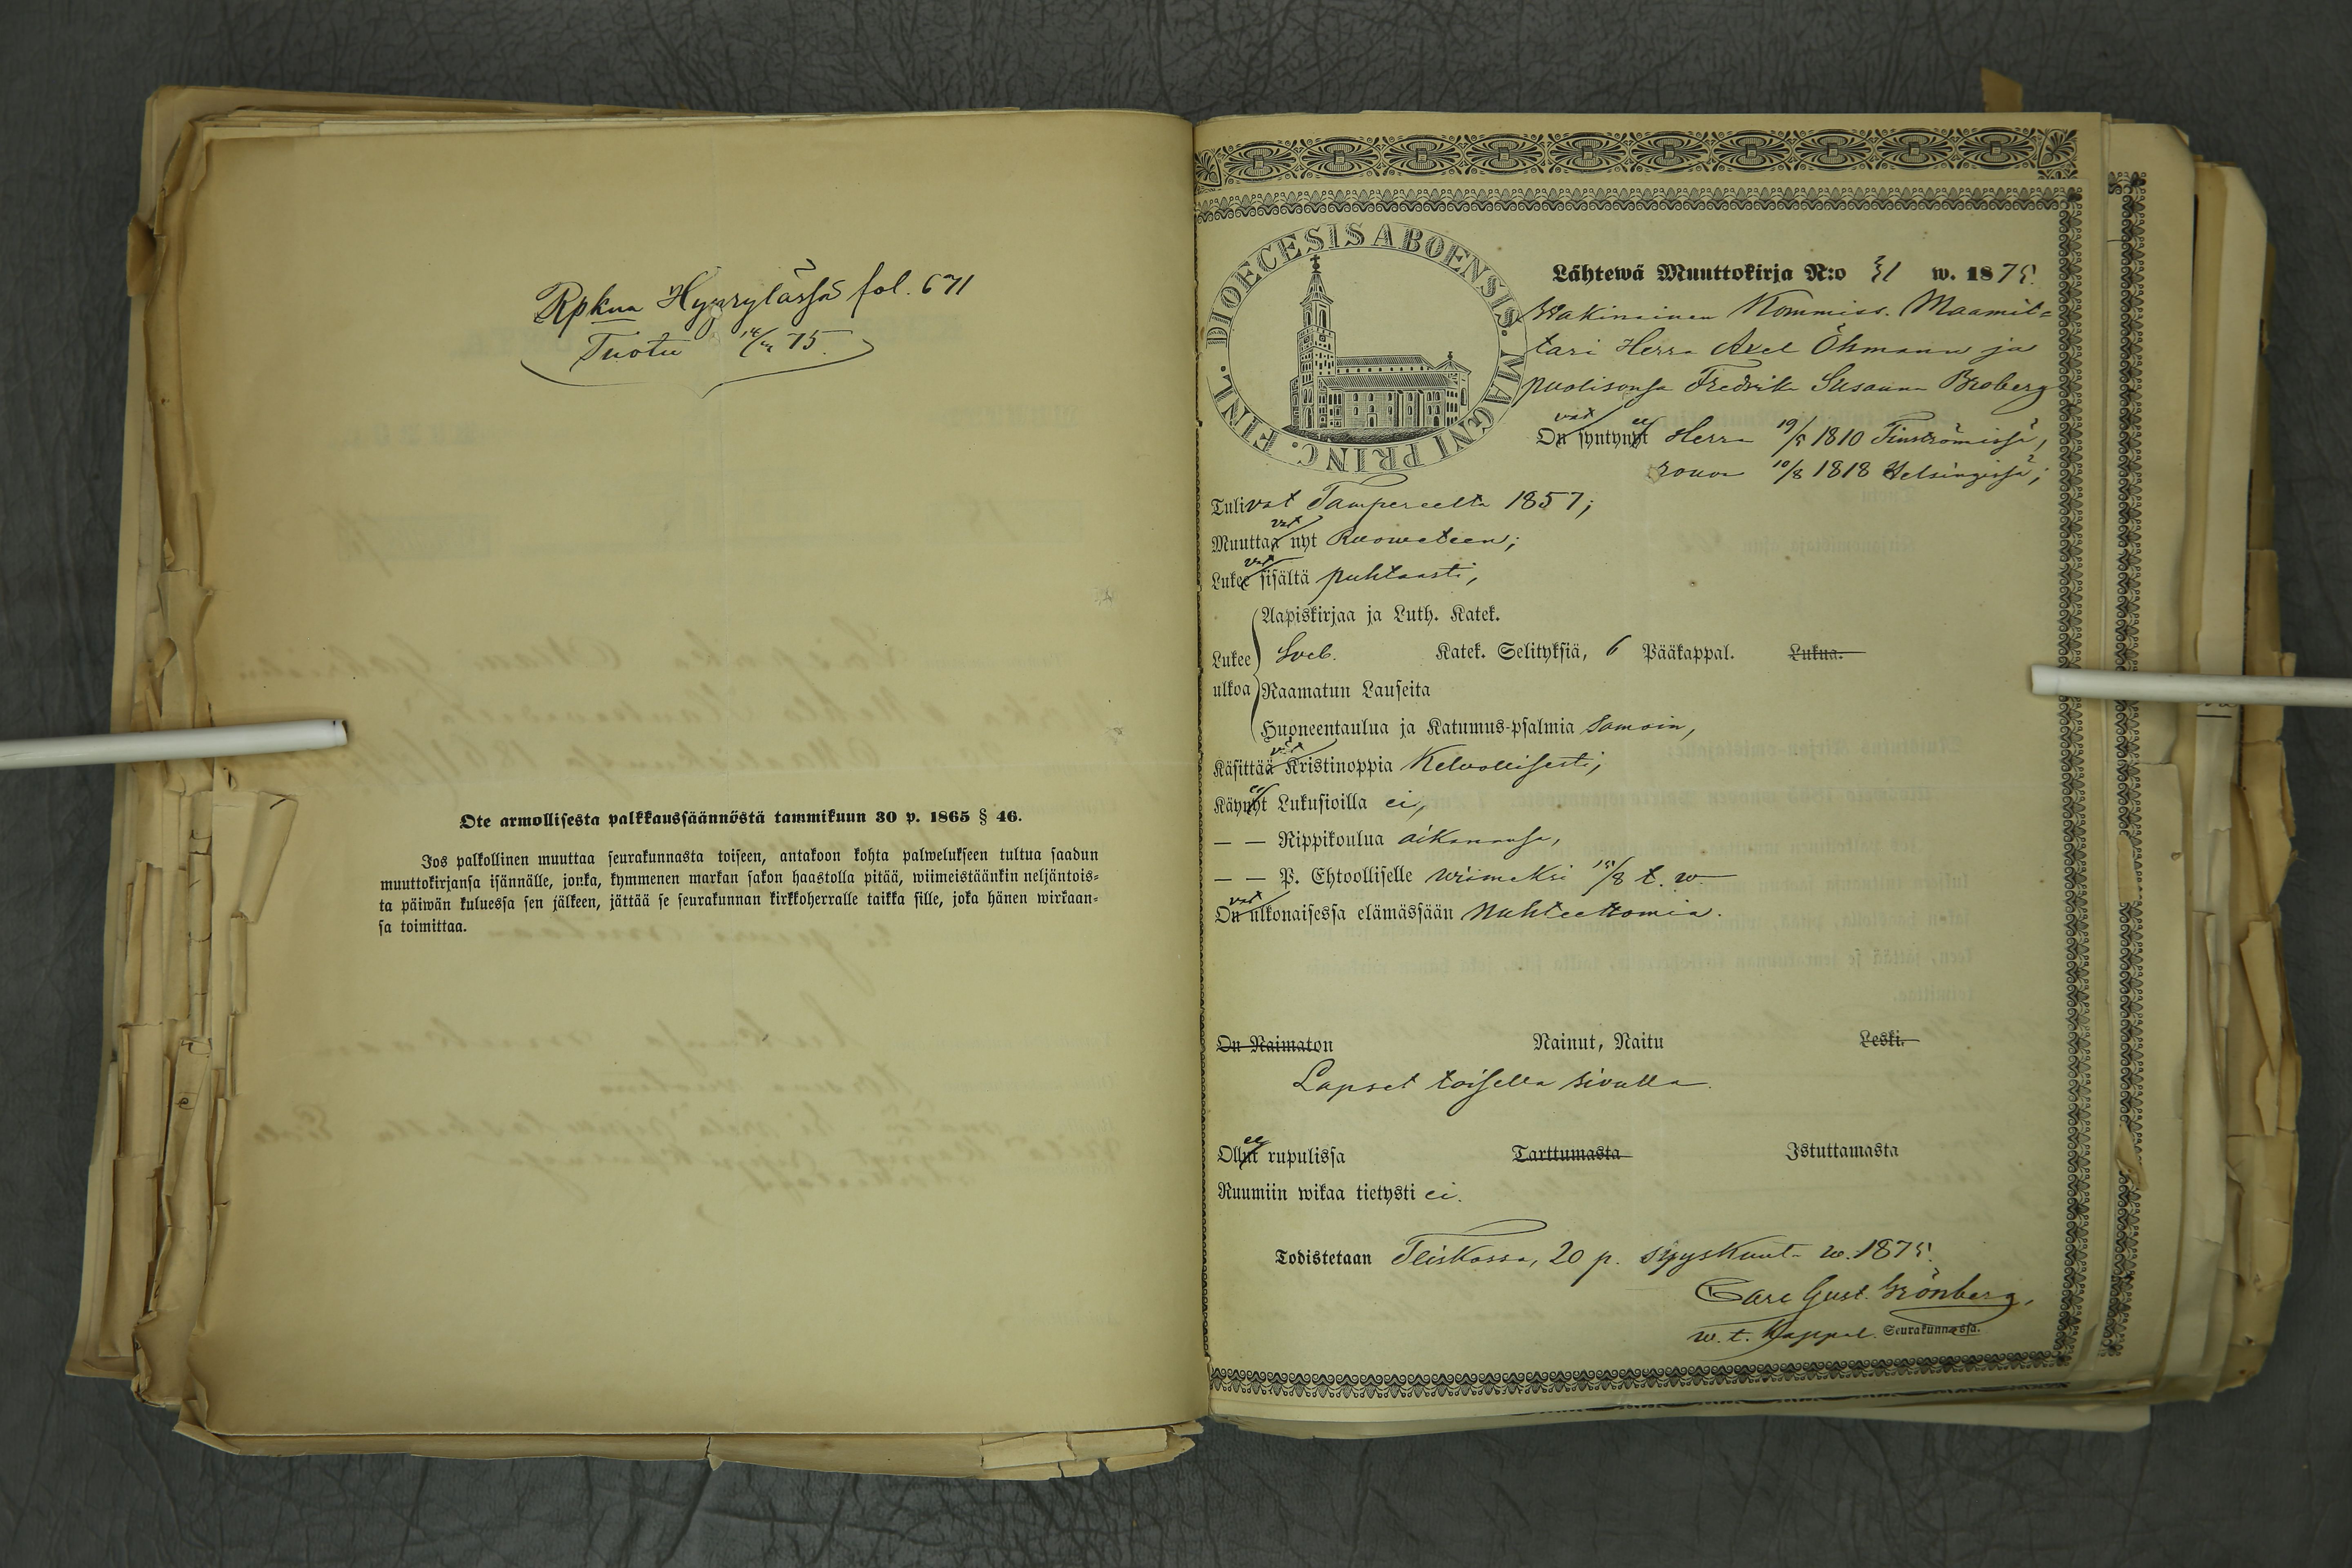 Rpkua Hyyrylässä fol. 671
Tuotu 75.
Ote armollisesta palkkaussäännöstä tammikuun 30 p. 1865 § 46.
Jos palkollinen muuttaa seurakunnasta toiseen, antakoon kohta palwelukseen tultua saadun
muuttokirjansa isännälle, jonka, kymmenen markan sakon haastolla pitää, wiimeistäänkin neljäntois-
ta päiwän kuluessa sen jälkeen, jättää se seurakunnan kirkkoherralle taikka sille, joka hänen wirkaan-
sa toimittaa.
DIOECESIS ABOENSIS. MAGNI PRINC. FINL.
Lähtewä Muuttokirja N:o 31 w. 1875.
Wakinainen Kommiss. Maamit-
tari Herra Axel Öhmann ja
puolisonsa Fredrika Susanna Broberg
vat et
On syntynyt Herra 19/5 1810 Finströmissä,
rouva 10/8 1818 Helsingissä;
Tulivat Tampereelta 1857;
vat
Muuttaa nyt Ruoweteen;
vat
Lukee sisältä puhtaasti,
Aapiskirjaa ja Luth. Katek.
Lukee Sveb. Katek. Selityksiä, 6 Pääkappal. Lukua.
ulkoa Raamatun Lauseita
Huoneentaulua ja Katumus-psalmia Samoin,
vät
Käsittää Kristinoppia Kelvollisesti;
et
Käynyt Lukusioilla ei,
— — Rippikoulua aikanansa,
— — P. Ehtoolliselle wiimeksi 15/8 t. w.
vat
On ulkonaisessa elämässään Nuhteettomia.
On Naimaton Nainut, Naitu Leski.
Lapset toisella sivulla.
ee
Ollut rupulissa Tarttumasta Istuttamasta
Ruumiin wikaa tietysti ei.
Todistetaan Teiskossa, 20 p. Syyskuut. w. 1875.
Carl Gust. Grönberg,
w. t. Kappal. Seurakunnassa.